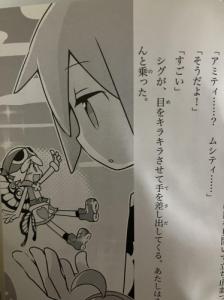 「アミティ……？　ムシティ……」
「そうだよ！」
「すごい」
シグが、目をキラキラさせて手を差し出してくる。あたしは
んと乗った。